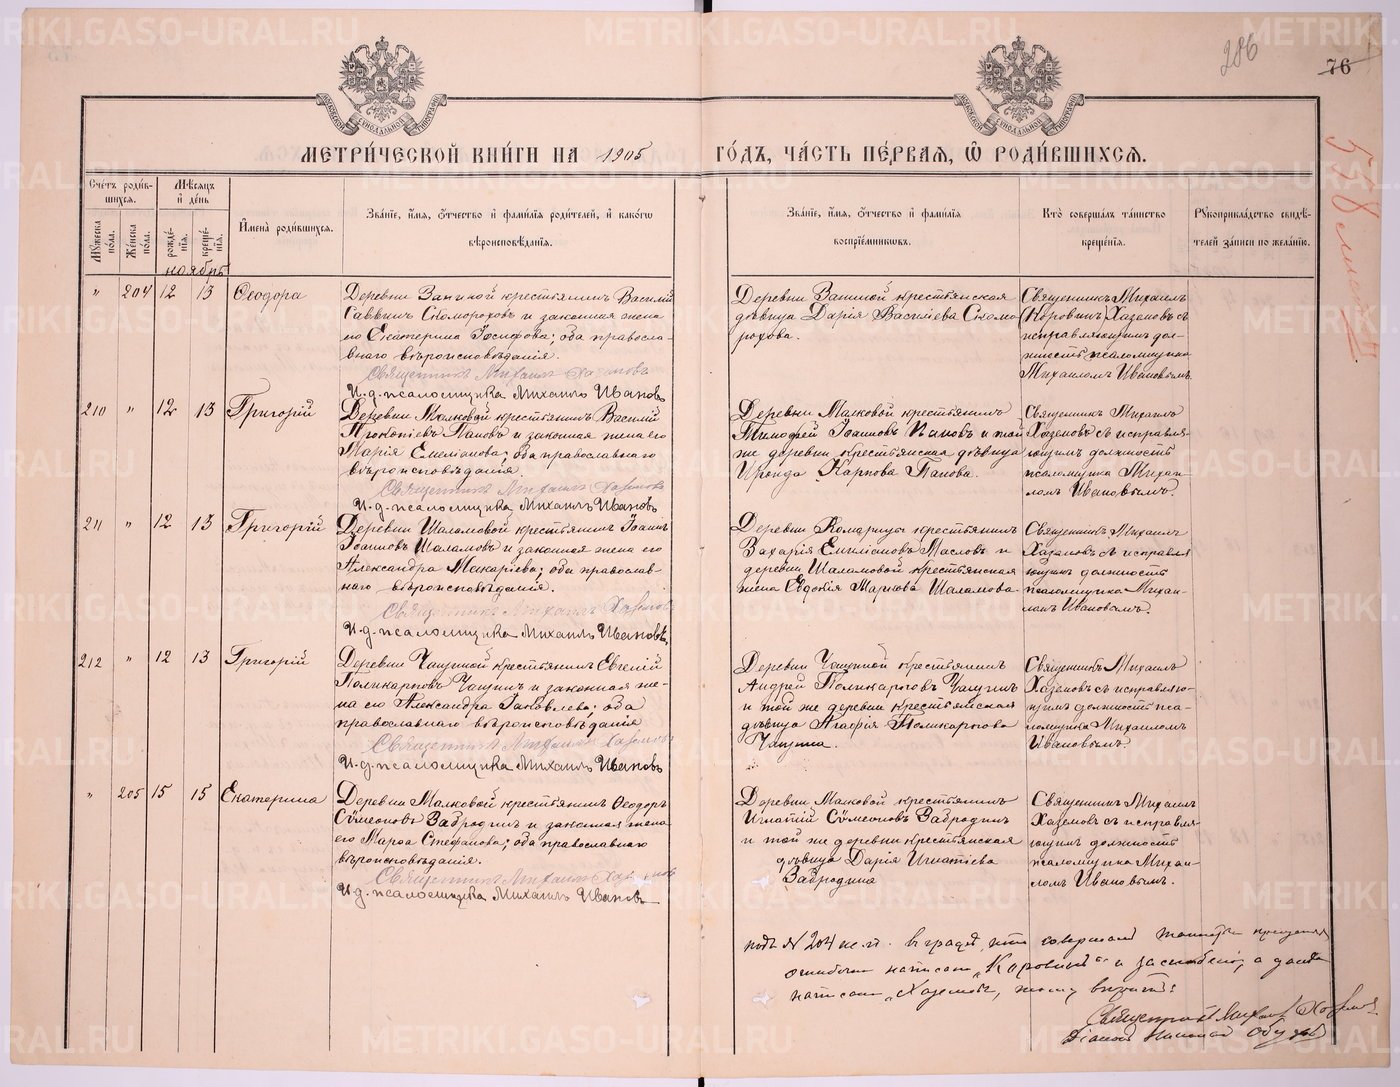 METRIKI.GASO-URAL.RU
286
76
558 листъ
МЕТРИ́ЧЕСКОЙ КНИ́ГИ НА 1905 ГО́ДЪ, ЧА́СТЬ ПЕ́РВАЯ, Ѽ РОДИ́ВШИХСЯ.
Сче́тъ роди́вшихся.
Мꙋ́жеска по́ла.
Же́нска по́ла.
Мѣ́сяцъ и҆ де́нь
рожде́нїя.
креще́нїя.
И҆мена̀ роди́вшихся.
Зва́нїе, и҆́мя, ѻ҆́тчество и҆ фами́лїя роди́телей, и҆ како́гѡ вѣроисповѣ́данїя.
Зва́нїе, и҆́мя, ѻ҆́тчество и҆ фами́лїя воспрїе́мникѡвъ.
Кто̀ соверша́лъ та́инство креще́нїя.
Рꙋкоприкла́дство свидѣ́телей за́писи по жела́нїю.
ноябрь
" 204 12 13 Ѳеодора
Деревни Заниной крестьянинъ Василій
Саввинъ Скоморохов и законная жена
его Екатерина Іосифова; оба правосла-
внаго вѣроисповѣданія.
Священникъ Михаилъ Хаземовъ
И.д. псаломщика Михаилъ Ивановъ
Деревни Заниной крестьянская
дѣвица Дарія Василіева Скомо-
рохова.
Священникъ Михаилъ
(Коровинъ) Хаземовъ съ
исправляющимъ дол-
жность псаломщика
Михаиломъ Ивановымъ.
210 " 12 13 Григорій
Деревни Малковой крестьянинъ Василій
Прокопіевъ Пановъ и законная жена его
Марія Емеліанова; оба православнаго
вѣроисповѣданія.
Священникъ Михаилъ Хаземовъ
И.д. псаломщика Михаилъ Ивановъ
Деревни Малковой крестьянинъ
Тимофей Іоанновъ Пановъ и той
же деревни крестьянская дѣвица
Ироида Карпова Панова.
Священникъ Михаилъ
Хаземовъ съ исправля-
ющимъ должность
псаломщика Михаи-
ломъ Ивановымъ.
211 " 12 13 Григорій
Деревни Шаламовой крестьянинъ Іоаннъ
Іоанновъ Шаламовъ и законная жена его
Александра Макаріева; оба православ-
наго вѣроисповѣданія.
Священникъ Михаилъ Хаземовъ
И.д. псаломщика Михаилъ Ивановъ.
Деревни Комарицы крестьянинъ
Захарія Емиліановъ Масловъ и
деревни Шаламовой крестьянская
жена Евдокія Маркова Шаламова
Священникъ Михаилъ
Хаземовъ съ исправля
ющимъ должность
псаломщика Михаи-
ломъ Ивановымъ.
212 " 12 13 Григорій
Деревни Чащиной крестьянинъ Евгеній
Поликарповъ Чащинъ и законная же-
на его Александра Іаковлева; оба
православнаго вѣроисповѣданія
Священникъ Михаилъ Хаземовъ
И.д. псаломщика Михаилъ Ивановъ
Деревни Чащиной крестьянинъ
Андрей Поликарповъ Чащинъ
и той же деревни крестьянская
дѣвица Агафія Поликарпова
Чащина.
Священникъ Михаилъ
Хаземовъ съ исправляю-
щимъ должность пса-
ломщика Михаиломъ
Ивановымъ.
" 205 15 15 Екатерина
Деревни Малковой крестьянинъ Ѳеодоръ
Сѵмеоновъ Забродинъ и законная жена
его Марѳа Стефанова; оба православнаго
вѣроисповѣданія.
Священникъ Михаилъ Хаземовъ
И.д. псаломщика Михаилъ Ивановъ
Деревни Малковой крестьянинъ
Игнатій Сѵмеоновъ Забродинъ
и той же деревни крестьянская
дѣвица Дарія Игнатіева
Забродина
Священникъ Михаилъ
Хаземовъ съ исправля
ющимъ должность
псаломщика Михаи-
ломъ Ивановымъ.
подъ № 204 ж.п. въ графѣ, кто совершалъ таинство крещенія
ошибочно написано „Коровинъ" и , а
написано „Хаземовъ",
Священникъ Михаилъ Хаземовъ
Діаконъ Николай